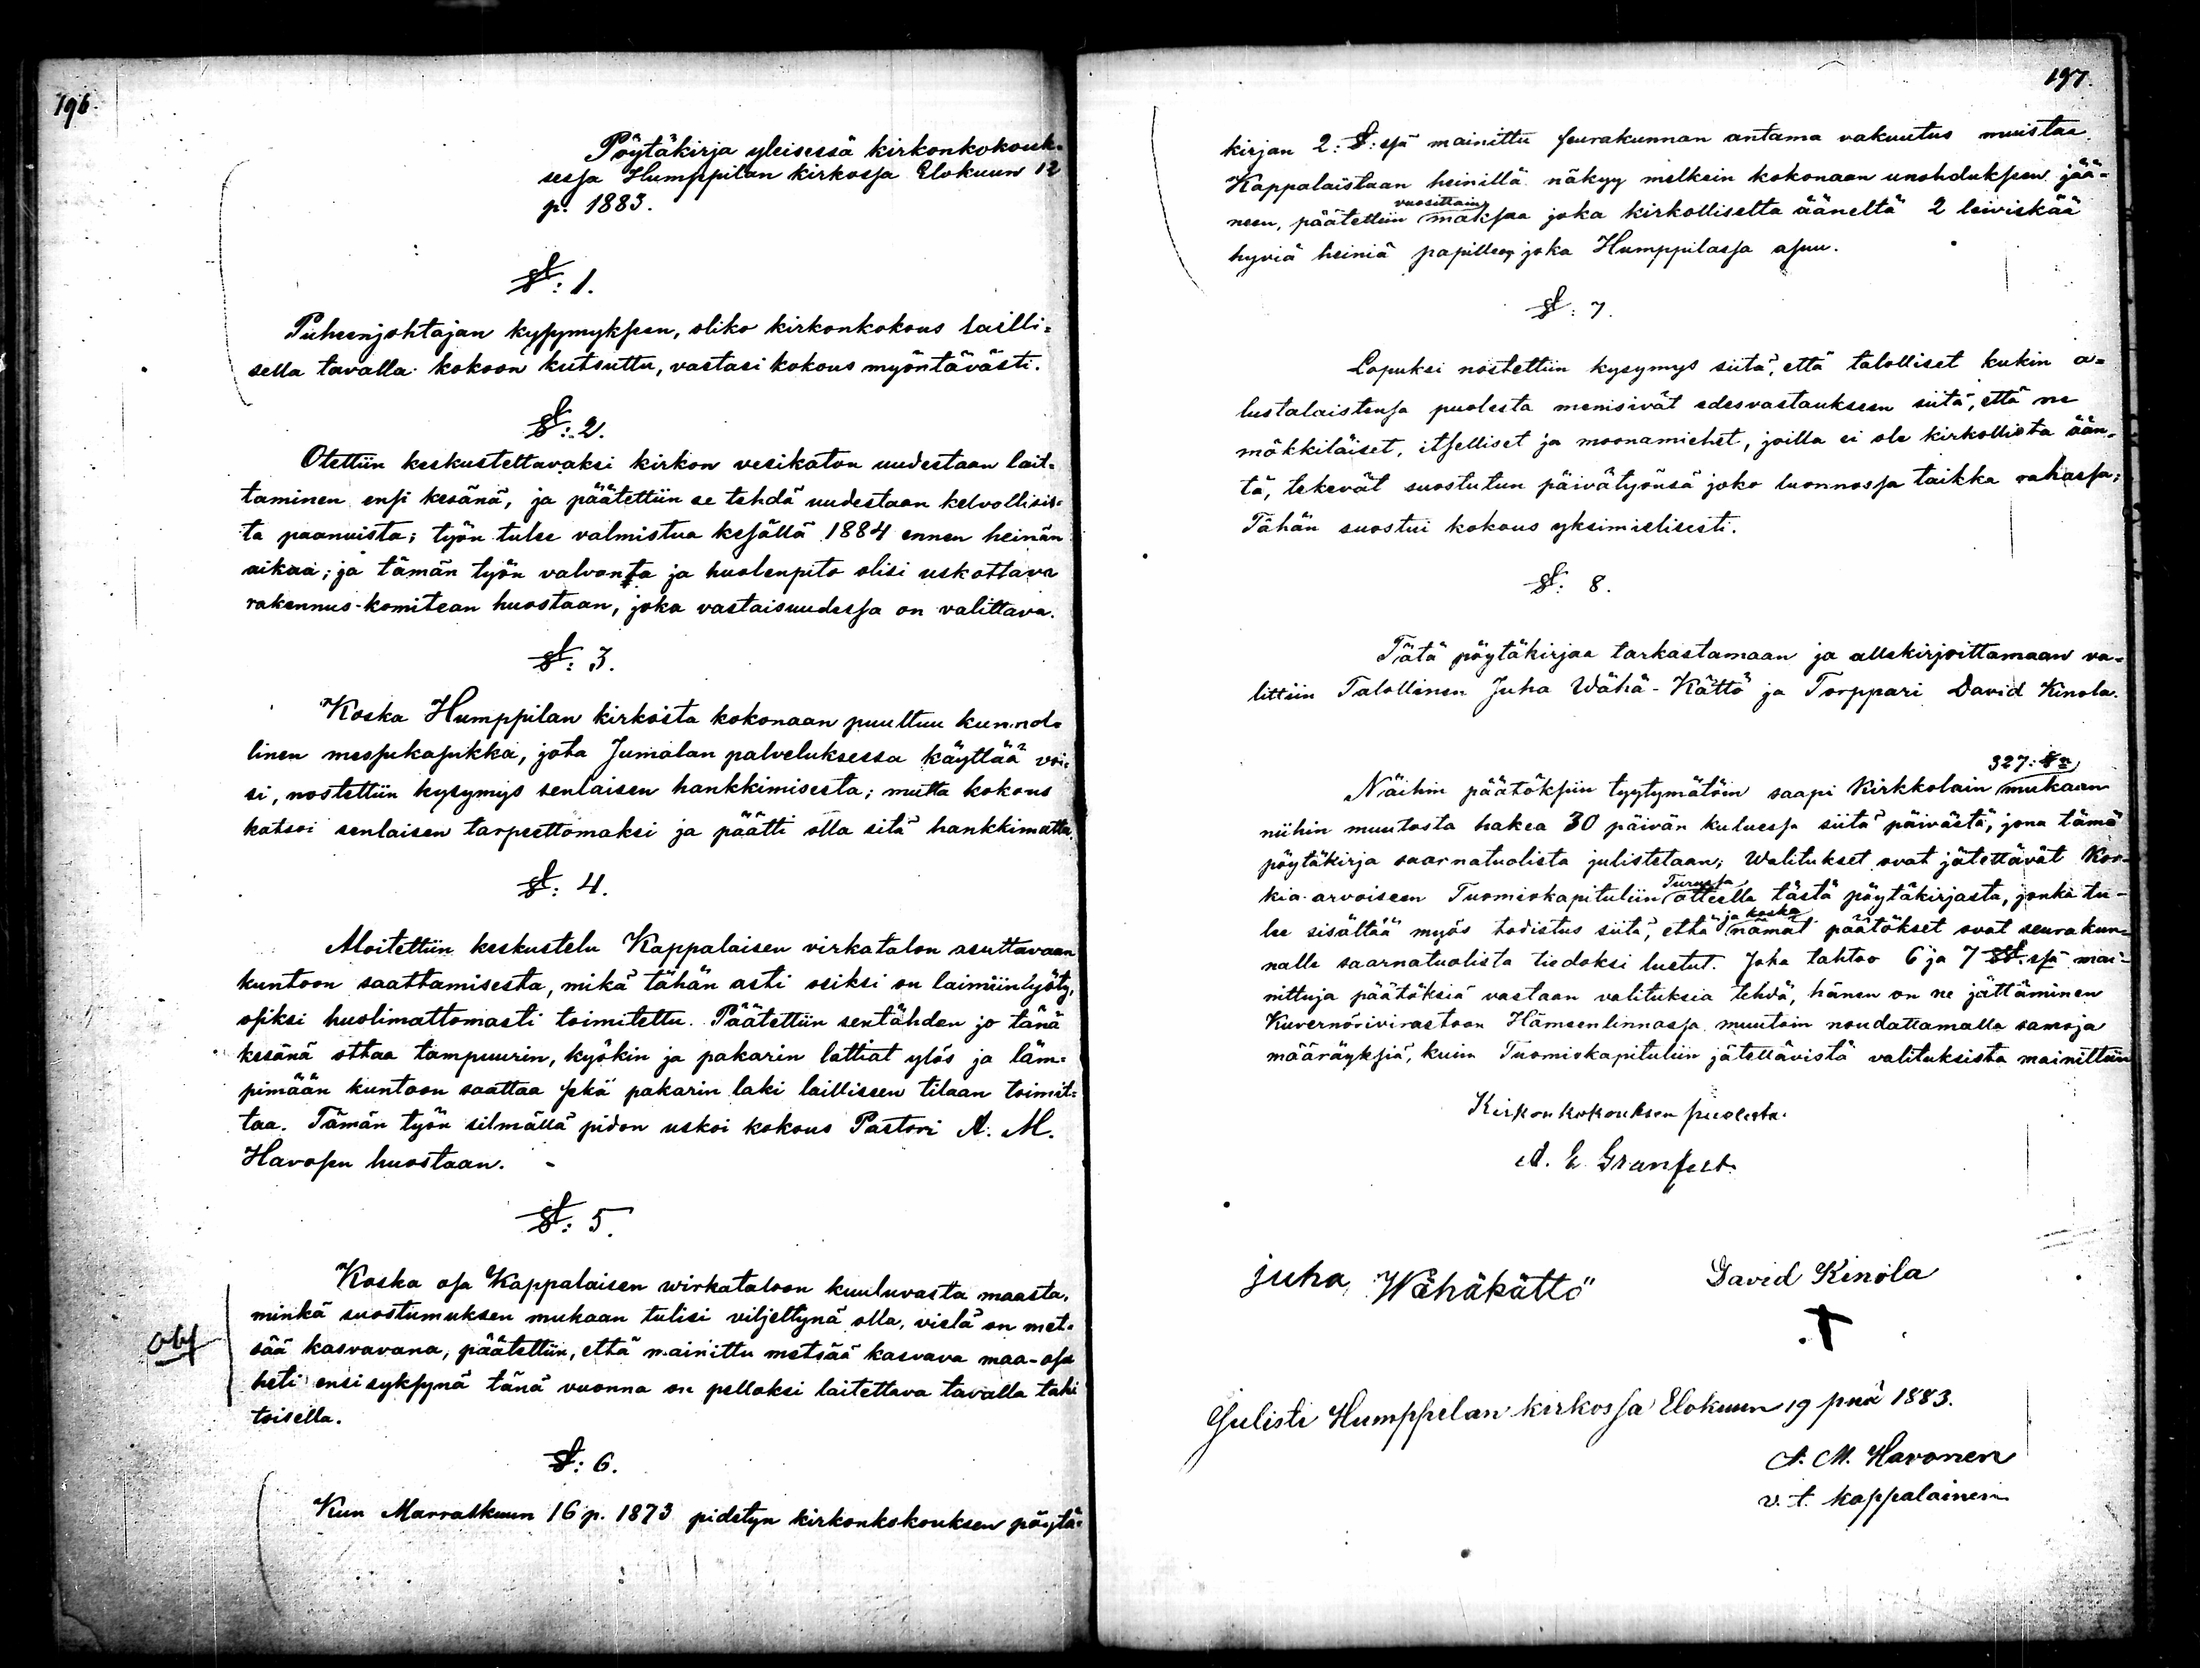 196.
Pöytäkirja yleisessä kirkonkokouk-
sessa Humppilan kirkossa Elokuun 12
p. 1883.
§: 1.
Puheenjohtajan kysymykseen, oliko kirkonkokous lailli-
sella tavalla kokoon kutsuttu, vastasi kokous myöntävästi.
§: 2.
Otettiin keskusteltavaksi kirkon vesikaton uudestaan lait-
taminen ensi kesänä, ja päätettiin se tehdä uudestaan kelvollisis-
ta paanuista; työn tulee valmistua kesällä 1884 ennen heinän
aikaa; ja tämän työn valvonta ja huolenpito olisi uskottava
rakennus-komitean huostaan, joka vastaisuudessa on valittava.
§: 3.
Koska Humppilan kirkosta kokonaan puuttuu kunnol-
linen messukasukka, jota Jumalan palveluksessa käyttää voi-
si, nostettiin kysymys senlaisen hankkimisesta; mutta kokous
katsoi senlaisen tarpeettomaksi ja päätti olla sitä hankkimatta.
§: 4.
Aloitettiin keskustelu Kappalaisen virkatalon asuttavaan
kuntoon saattamisesta, mikä tähän asti osiksi on laimiinlyöty,
osiksi huolimattomasti toimitettu. Päätettiin sentähden jo tänä
kesänä ottaa tampuurin, kyökin ja pakarin lattiat ylös ja läm-
pimään kuntoon saattaa sekä pakarin laki lailliseen tilaan toimit-
taa. Tämän työn silmällä pidon uskoi kokous Pastori A. M.
Havosen huostaan. -
§: 5.
Koska osa Kappalaisen wirkataloon kuuluvasta maasta,
minkä suostumuksen mukaan tulisi viljeltynä olla, vielä on met-
sää kasvavana, päätettiin, että mainittu metsää kasvava maa-osa
heti ensi syksynä tänä vuonna on pelloksi laitettava tavalla tahi
toisella.
§: 6.
Kun Marraskuun 16 p. 1873 pidetyn kirkonkokouksen pöytä-
197.
kirjan 2: §:ssä mainittu seurakunnan antama vakuutus muistaa
Kappalaistaan heinillä näkyy melkein kokonaan unohdukseen jää-
neen, päätettiin vuosittain maksaa joka kirkolliselta ääneltä 2 leiviskää
hyviä heiniä papille, joka Humppilassa asuu.
§: 7.
Lopuksi nostettiin kysymys siitä, että talolliset kukin a-
lustalaistensa puolesta menisivät edesvastaukseen siitä, että ne
mäkkiläiset, itselliset ja moonamiehet, joilla ei ole kirkollista ään-
tä, tekevät suostutun päivätyönsä joko luonnossa taikka rahassa;
Tähän suostui kokous yksimielisesti.
§: 8.
Tätä pöytäkirjaa tarkastamaan ja allekirjoittamaan va-
littiin Talollinen Juha Wähä-Kättö ja Torppari David Kinola.
327: §:n
Näihin päätöksiin tyytymätöin saapi Kirkkolain mukaan
niihin muutosta hakea 30 päivän kuluessa siitä päivästä, jona tämä
pöytäkirja saarnatuolista julistetaan; Walitukset ovat jätettävät Kor-
kia-arvoiseen Tuomiokapituliin Turussa otteella tästä pöytäkirjasta, jonka tu-
lee sisältää myös todistus siitä, että ja koska nämät päätökset ovat seurakun-
nalle saarnatuolista tiedoksi luetut. Joka tahtoo 6 ja 7 §§:ssä mai-
nittuja päätöksiä vastaan valituksia tehdä, hänen on ne jättäminen
Kuvernörivirastoon Hämeenlinnassa muutoin noudattamalla samoja
määräyksiä, kuin Tuomiokapituliin jätettävistä valituksista mainittiin
Kirkonkokouksen puolesta.
A. E. Granfelt
juha Wähäkättö
David Kinola
Julisti Humppilan kirkossa Elokuun 19 pnä 1883.
A. M. Havonen
v. t. kappalainen